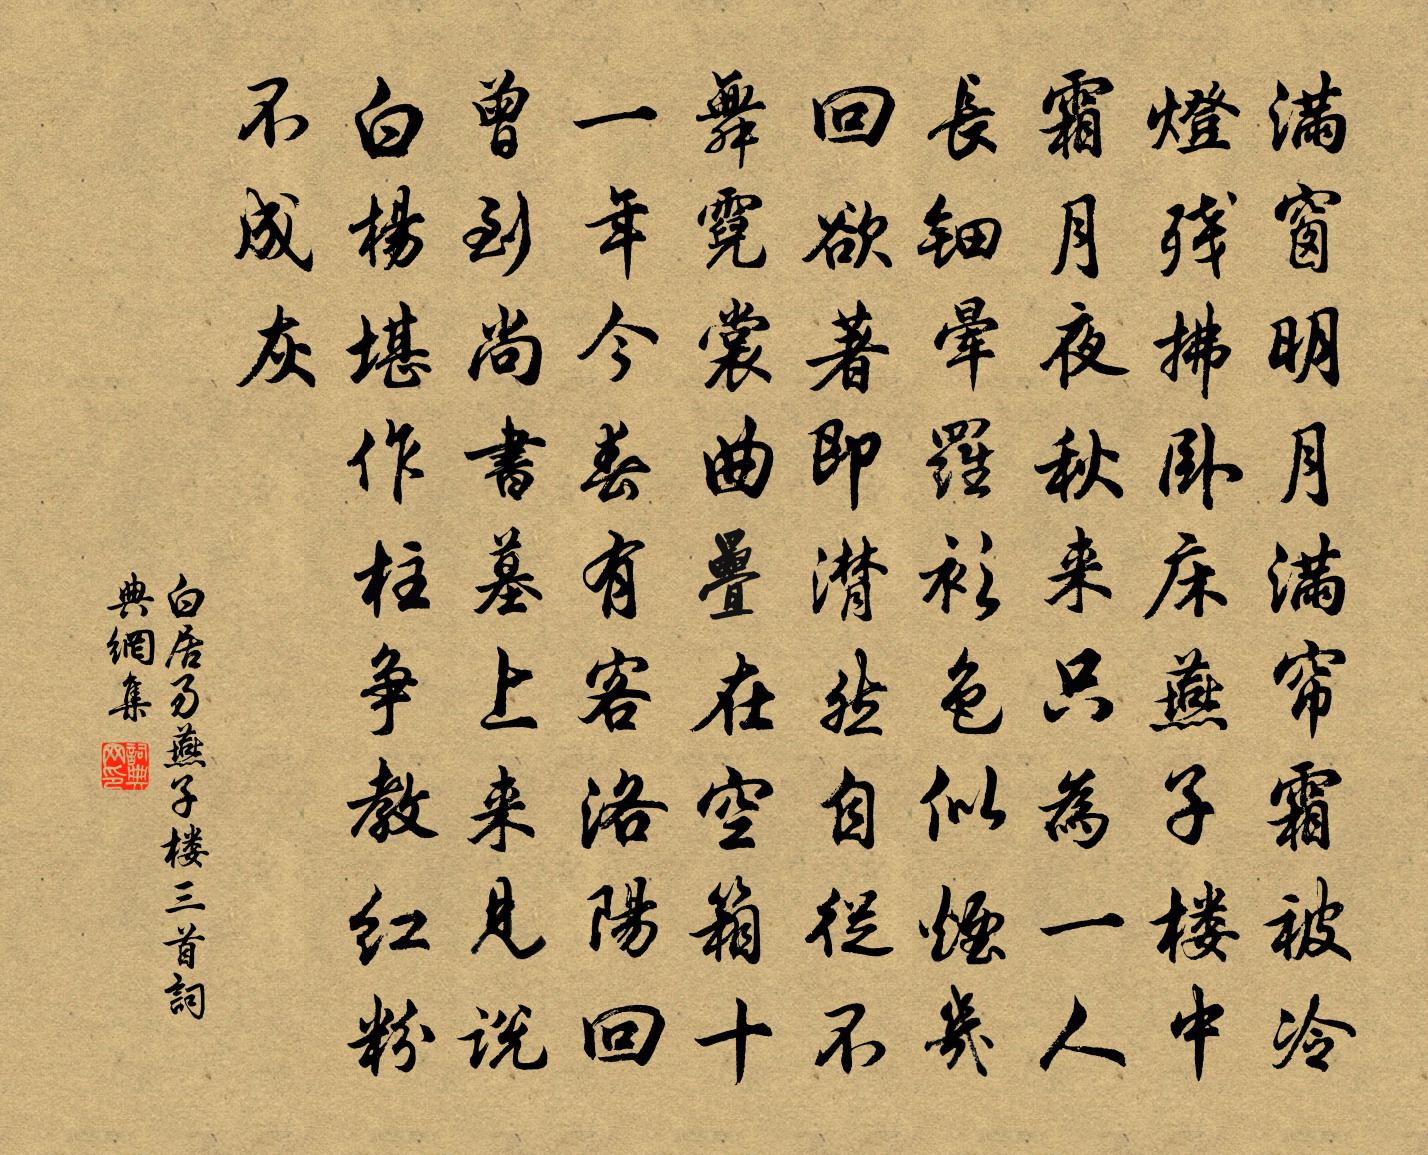 满窗明月满帘霜被冷
燈残拂卧床燕子楼中
霜月夜秋来只為一人
長钿暈羅衫色似煙幾
回欲著即潸然自從不
舞霓裳曲疊在空箱十
一年今春有客洛陽回
曾到尚書墓上来見説
白楊堪作柱争教红粉
不成灰
白居易燕子楼三首詞
典網集
詞典网印